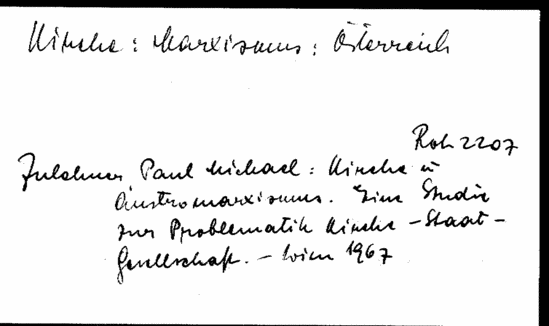 Kirche : Marxismus : Österreich
Roh 2207
Zulehner Paul Michael : Kirche u
Austromarxismus. Eine Studie
zur Problematik Kirche - Staat -
Gesellschaft. - Wien 1967